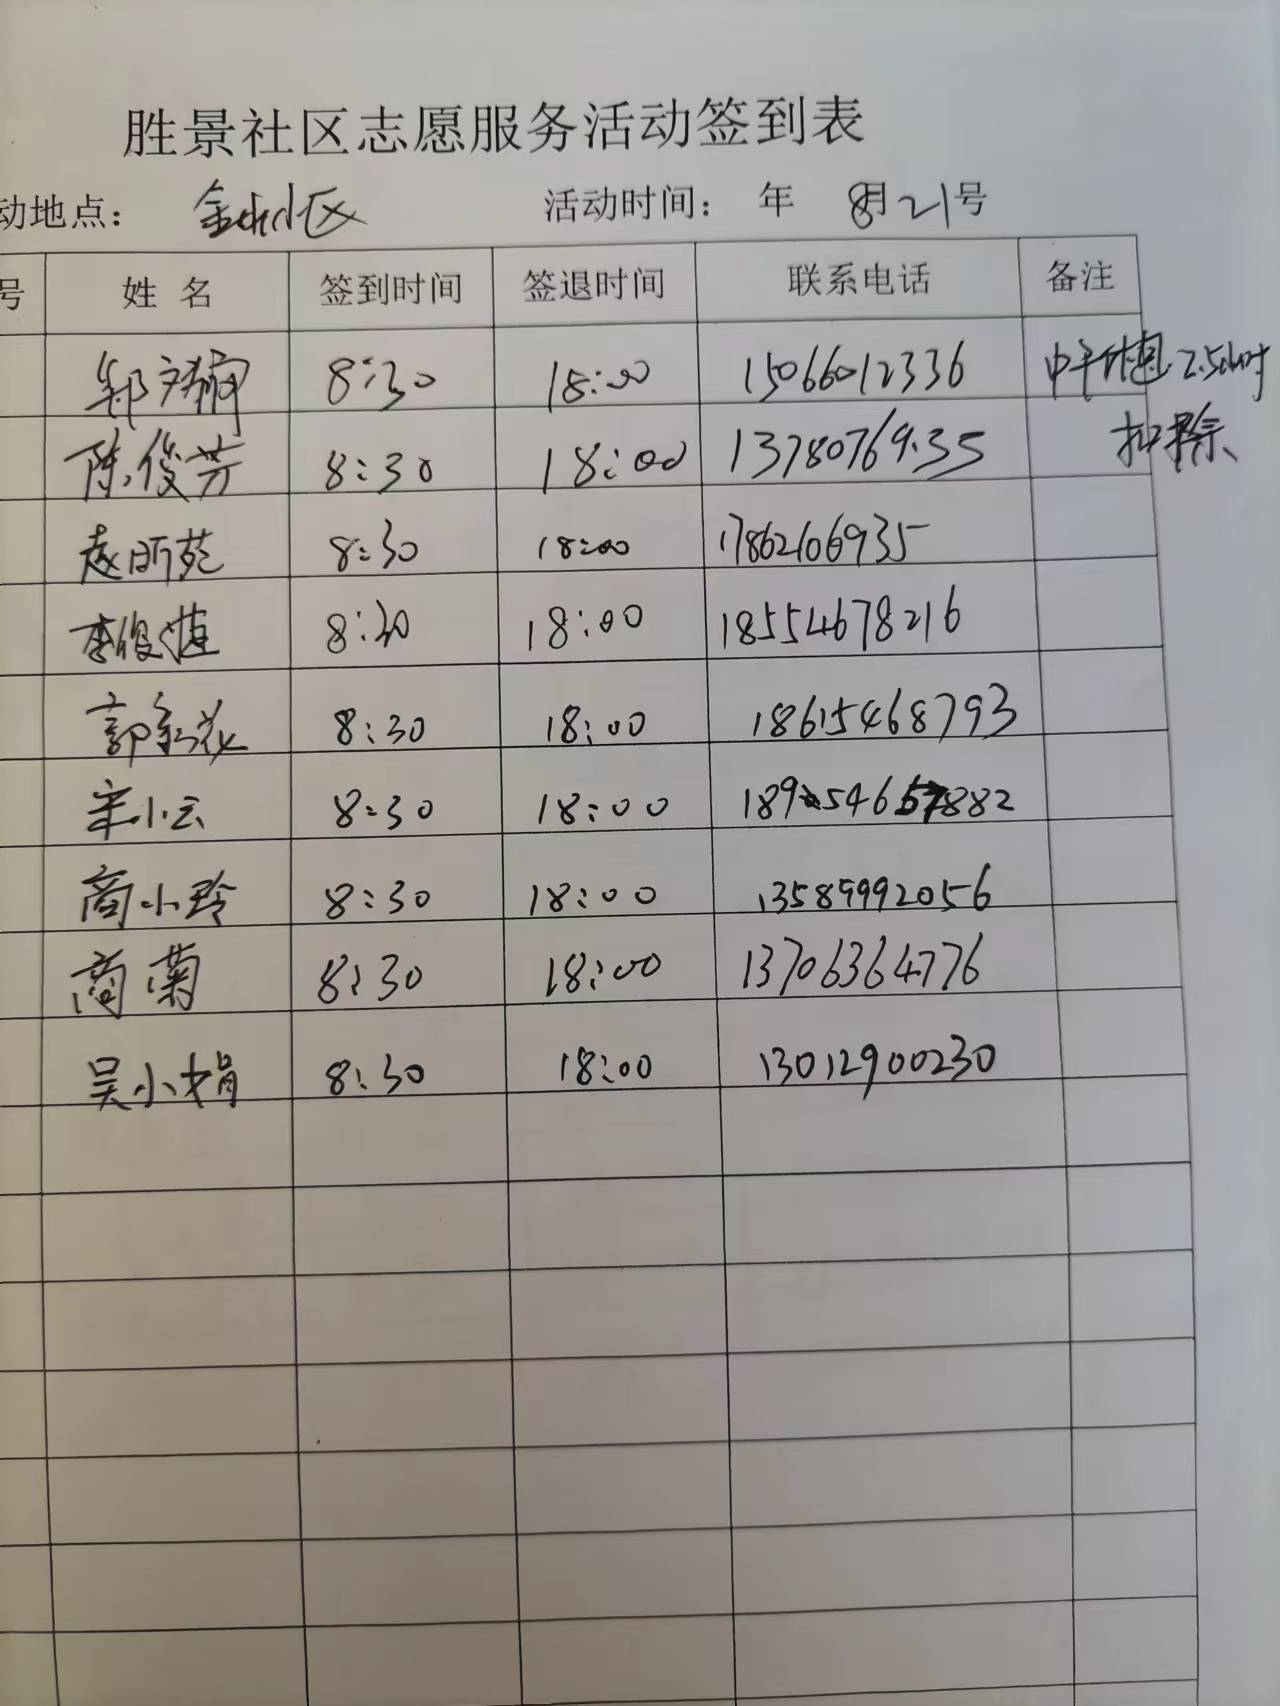 胜景社区志愿服务活动签到表
动地点： 小区 活动时间： 年 8月21号
号 姓名 签到时间 签退时间 联系电话 备注
8:30 18:00 15066012336 2.5小时
陈俊芳 8:30 18:00 13780769.35 扣除
赵昕苑 8:30 18:00 17862106935
李俊莲 8:30 18:00 18554678216
郭 花 8:30 18:00 18615468793
宋小云 8:30 18:00
商小玲 8:30 18:00 13589992056
商菊 8:30 18:00 13706364776
吴小娟 8:30 18:00 13012900230